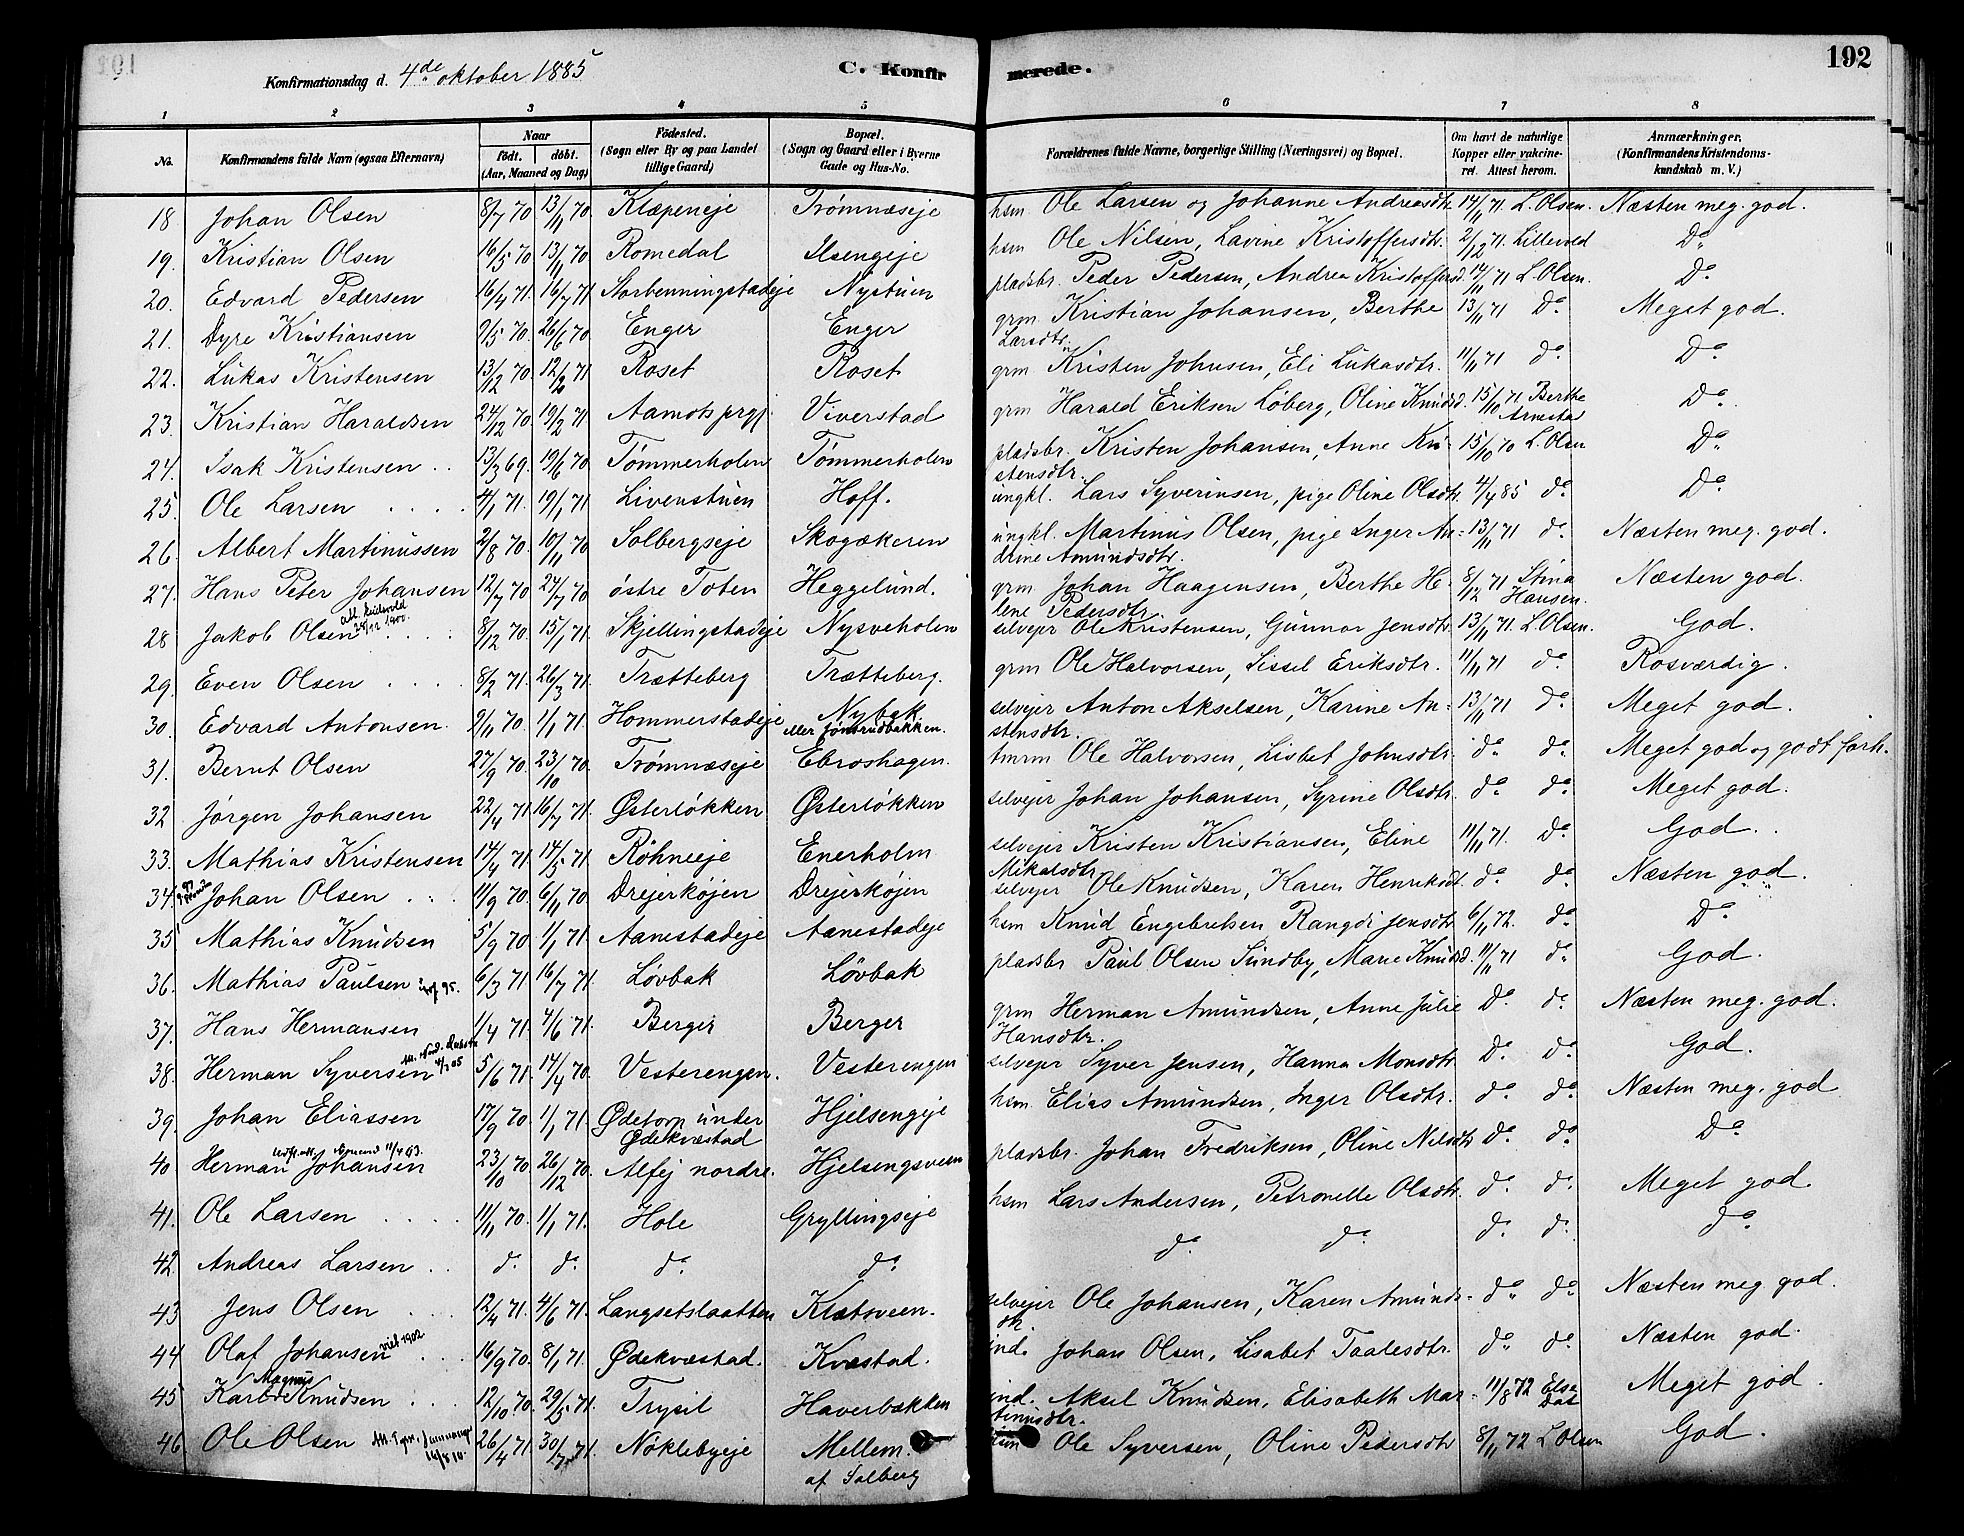 Konfirmationsdag d. 4de oktober 1885 C. Konfirmerede. 192
1 2 3 4 5 6 7 8
No. Konfirmandens fulde Navn (ogsaa Efternavn) Naar født. døbt. (Aar, Maaned og Dag) Fødested. (Sogn eller By og paa Landet tillige Gaard) Bopæl. (Sogn og Gaard eller i Byerne Gade og Hus-No. Forældrenes fulde Navne, borgerlige Stilling (Næringsvei) og Bopæl. Om havt de naturlige Kopper eller vakcineret. Attest herom. Anmærkninger. (Konfirmandens Kristendomskundskab m. V.)
18 Johan Olsen 8/7 70 13/11 70 Klæpeneje Trømnæseje hsm Ole Larsen og Johanne Andreasdtr. 14/11 71. L. Olsen. Næsten meg. god.
19. Kristian Olsen 16/5 70 13/11 70 Romedal Ilsengeje hsm Ole Nilsen, Lavine Kristoffersdtr. 2/12 71. Lillevold Do
20. Edvard Pedersen 16/4 71. 16/7 71 Storbenningstadeje Nystuen pladsbr. Peder Pedersen, Andrea Kristoffersd. 14/11 71 L. Olsen. Do
21. Dyre Kristiansen 9/5 70. 26/6 70 Enger Enger grm Kristian Johansen, Berthe Larsdtr. 13/11 71 Do Meget god.
22. Lukas Kristensen 13/12 70 12/2 71 Roset Roset grm Kristen Johnsen, Eli Lukasdtr. 11/11 71 do Do
23. Kristian Haraldsen 24/12 70 19/2 71 Aamots prgj. Viverstad grm Harald Eriksen Løberg, Oline Knudsd. 15/10 71 Berthe Arnestad Do
24. Isak Kristensen 13/3 69. 19/6 70 Tømmerholen Tømmerholen pladsbr. Kristen Johansen, Anne Kristensdtr. 15/10 70 L. Olsen Do
25. Ole Larsen 4/1 71. 19/1 71 Livenstuen Hoff. ungkl. Lars Syverinsen, pige Oline Olsdtr. 4/4 85 do Do
26. Albert Martinussen 2/8 70. 10/11 70 Solbergseje Skogækeren ungkl. Martinus Olsen, pige Inger Andrine Amundsdtr. 13/11 71 do Næsten meg. god.
27. Hans Peter Johansen 12/7 70 24/7 70 østre Toten Heggelund. grm Johan Haagensen, Berthe Helene Pedersdtr. 8/12 71 Stina Hansen. Næsten god.
28 Jakob Olsen 8/12 70 15/1 71. Skjellingstadeje Nysveholen selvejer Ole Kristensen, Gunnor Jensdtr. 13/11 71. L. Olsen. God.
29. Even Olsen 8/2 71. 26/3 71. Trætteberg Trætteberg. grm Ole Halvorsen, Sissel Eriksdtr. 11/11 71 do Rosværdig.
30. Edvard Antonsen 9/11 70 1/1 71. Hommerstadeje Nybak eller Jønsrudbakken. selvejer Anton Akselsen, Karine Anstensdtr. 13/11 71 do Meget god.
31. Bernt Olsen 27/9 70. 23/10 70. Trømnæseje Ebroshagen. tmrm Ole Halvorsen, Lisbet Johnsdtr. do do Meget god og godt forh.
32 Jørgen Johansen 22/4 71 16/7 71. Østerløkken Østerløkken selvejer Johan Johansen, Syrine Olsdtr. do do Meget god.
33. Mathias Kristensen 14/4 71. 14/5 71 Røhneeje Enerholm selvejer Kristen Kristiansen, Eline Mikalsdtr. 11/11 71. Do God.
34. Johan Olsen 11/9 70 6/11 70 Drejerkøjen Drejerkøjen selvejer Ole Knudsen, Karen Henriksdt. do do Næsten god.
35 Mathias Knudsen 5/9 70 1/1 71. Aanestadeje Aanestadeje hsm Knud Engebretsen Rangdi Jensdtr. 6/1 72. do Do
36. Mathias Paulsen 6/3 71 16/7 71. Løvbak Løvbak pladsbr Paul Olsen Sundby, Marie Knudsd. 11/11 71 do God.
37. Hans Hermansen 1/4 71. 4/6 71. Berger Berger grm Herman Amundsen, Anne Julie Hansdtr. Do do Næsten meg. god.
38. Herman Syversen 5/6 71. 14/4 70. Vesterengen. Vesterengen selvejer Syver Jensen, Hanna Monsdtr. Do do God.
39. Johan Eliassen 17/9 70 1/1 71. Ødetorp under Ødekvæstad Hjelsengeje hsm Elias Amundsen, Inger Olsdtr. do do Næsten meg. god
40 Herman Johansen 23/10 70 26/12 70. Alfej nordre. Hjelsengsveen pladsbr. Johan Fredriksen, Oline Nilsdtr do do Do
41. Ole Larsen 11/11 70. 1/1 71. Hole Gryllingseje hsm Lars Andersen, Petronelle Olsdtr. do do Meget god.
42. Andreas Larsen do do do do do do do do do
43 Jens Olsen 12/4 71. 4/6 71. Langsetslaatten Klatsveen. selvejer Ole Johansen, Karen Amundsdtr do do Næsten meg god.
44 Olaf Johansen viet 1902 16/9 70. 8/1 71. Ødekvæstad. Kvæstad. ind. Johan Olsen, Lisabet Taalesdtr. do do Næsten god.
45 Karl Magnus Knudsen 12/10 70. 29/5 71. Trysil Haverbækken ind. Aksel Knudsen, Elisabeth Martinusdtr. 11/8 72 Meget god.
46 Ole Olsen 26/4 71. 30/7 71. Nøklebyeje Mellem. af Solberg hsm Ole Syversen, Oline Pedersdtr 8/11 72 L Olsen God.